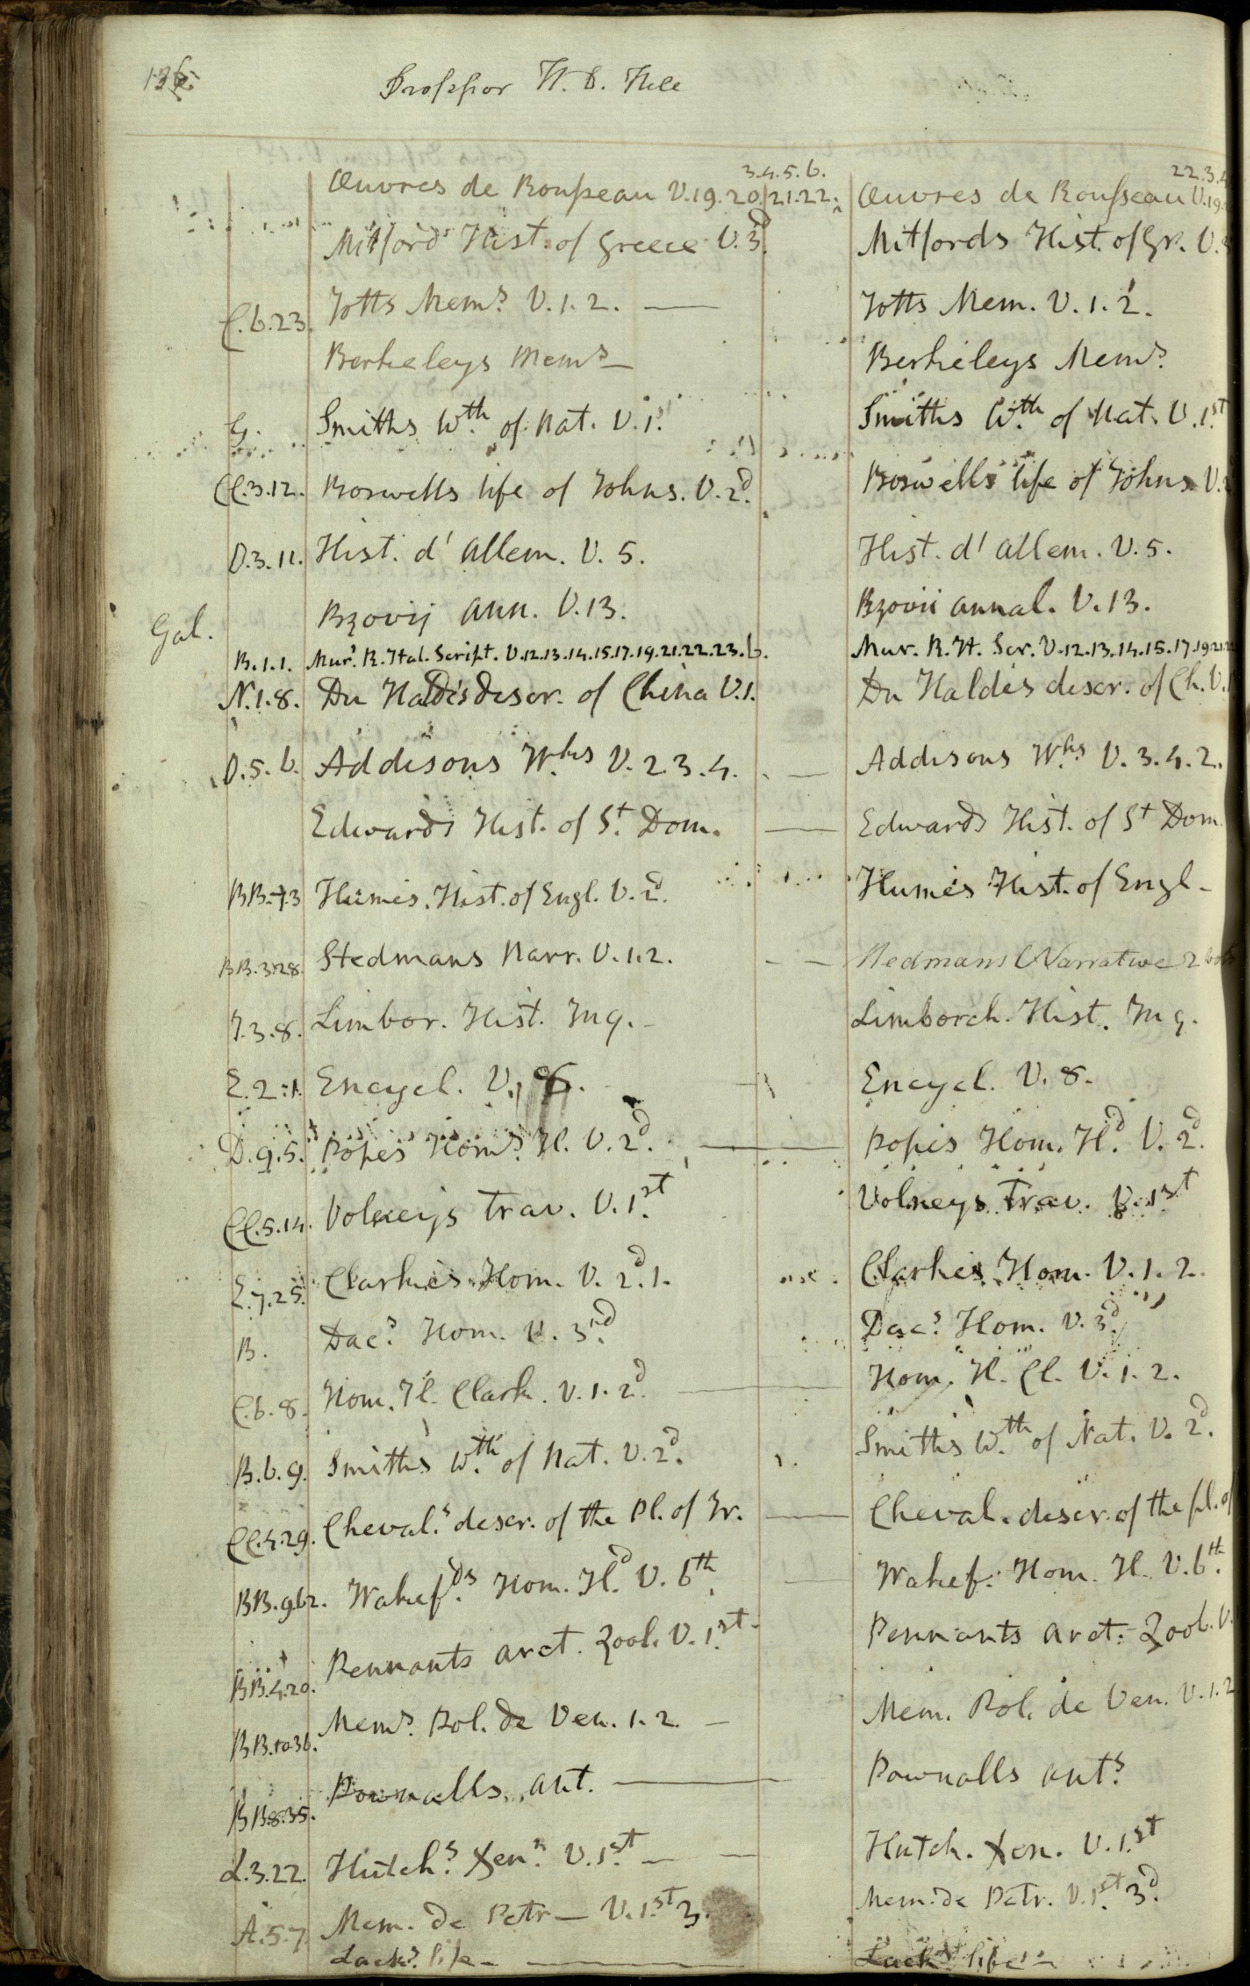 136
Professor H. D. Hill
3.4.5.6. 22.3.4
Œuvres de Rousseau V.19.20.21.22. Œuvres de Rousseau V.19.
Mitfords Hist. of Greece V.3d Mitfords Hist. of Gr. V.3
C.6.23. Totts Mems. V.1.2. — Totts Mem. V.1.2.
Berkeleys Mems — Berkeleys Mems.
G. Smiths Wth. of Nat. V.1st Smiths Wth. of Nat. V.1st
CC.3.12. Boswells life of Johns. V.2d. Boswells life of Johns. V.2
D.3.11. Hist. d'allem. V.5. Hist. d'allem. V.5.
Gal. Bzovij ann. V.13. Bzovii annal. V.13.
B.1.1. Murs. R. Ital. Script. V.12.13.14.15.17.19.21.22.23.6. Mur. R. It. Scr. V.12.13.14.15.17.19.21.22
N.1.8. Du Haldes descr. of China V.1. Du Haldes descr. of Ch. V.
D.5.6. Addisons Wks V.2.3.4. — Addisons Wks. V.3.4.2.
Edwards Hist. of St. Dom. — Edwards Hist. of St Dom.
BB.7.3 Humes Hist. of Engl. V.2d. Humes Hist. of Engl -
BB.3.28. Stedmans Narr. V.1.2. — — Stedmans Narrative 2 vols
I.3.8. Limbor. Hist. Inq. - Limborch. Hist. Inq.
E.2.1. Encycl. V.8. — Encycl. V.8.
D.9.5. Popes Homs. Il. V.2d. — Popes Hom. Ild. V.2d.
CC.5.14. Volneys trav. V.1st. Volneys Trav. V.1st
E.7.25. Clarkes Hom. V.2d.1. Clarkes Hom. V.1.2.
B. Dacs. Hom. V.3d. Dacs. Hom. V.3d.
C.6.8. Hom. Il. Clark. V.1.2d. — Hom. Il. Cl. V.1.2.
B.6.9. Smiths Wth. of Nat. V.2d. Smiths Wth. of Nat. V.2d.
CC.4.29. Chevals. descr. of the Pl. of Tr. — Cheval. descr. of the pl. of
BB.9.62. Wakefds. Hom. Ild. V.6th. — Wakef. Hom. Il. V.6th.
BB.4.20. Pennants arct. Zool. V.1st. Pennants arct. Zool. V.
BB.10.36. Mems. Pol. de Ven. 1.2. — Mem. Pol. de Ven. V.1.2
BB.8.35. Pownalls ant. — Pownalls ants.
L.3.22. Hutchs. Xens. V.1st. — — Hutch. Xen. V.1st
A.5.7 Mem. de Petr — V.1st.3. Mem. de Petr. V.1st.3d.
Lacks. life — Lacks. life -